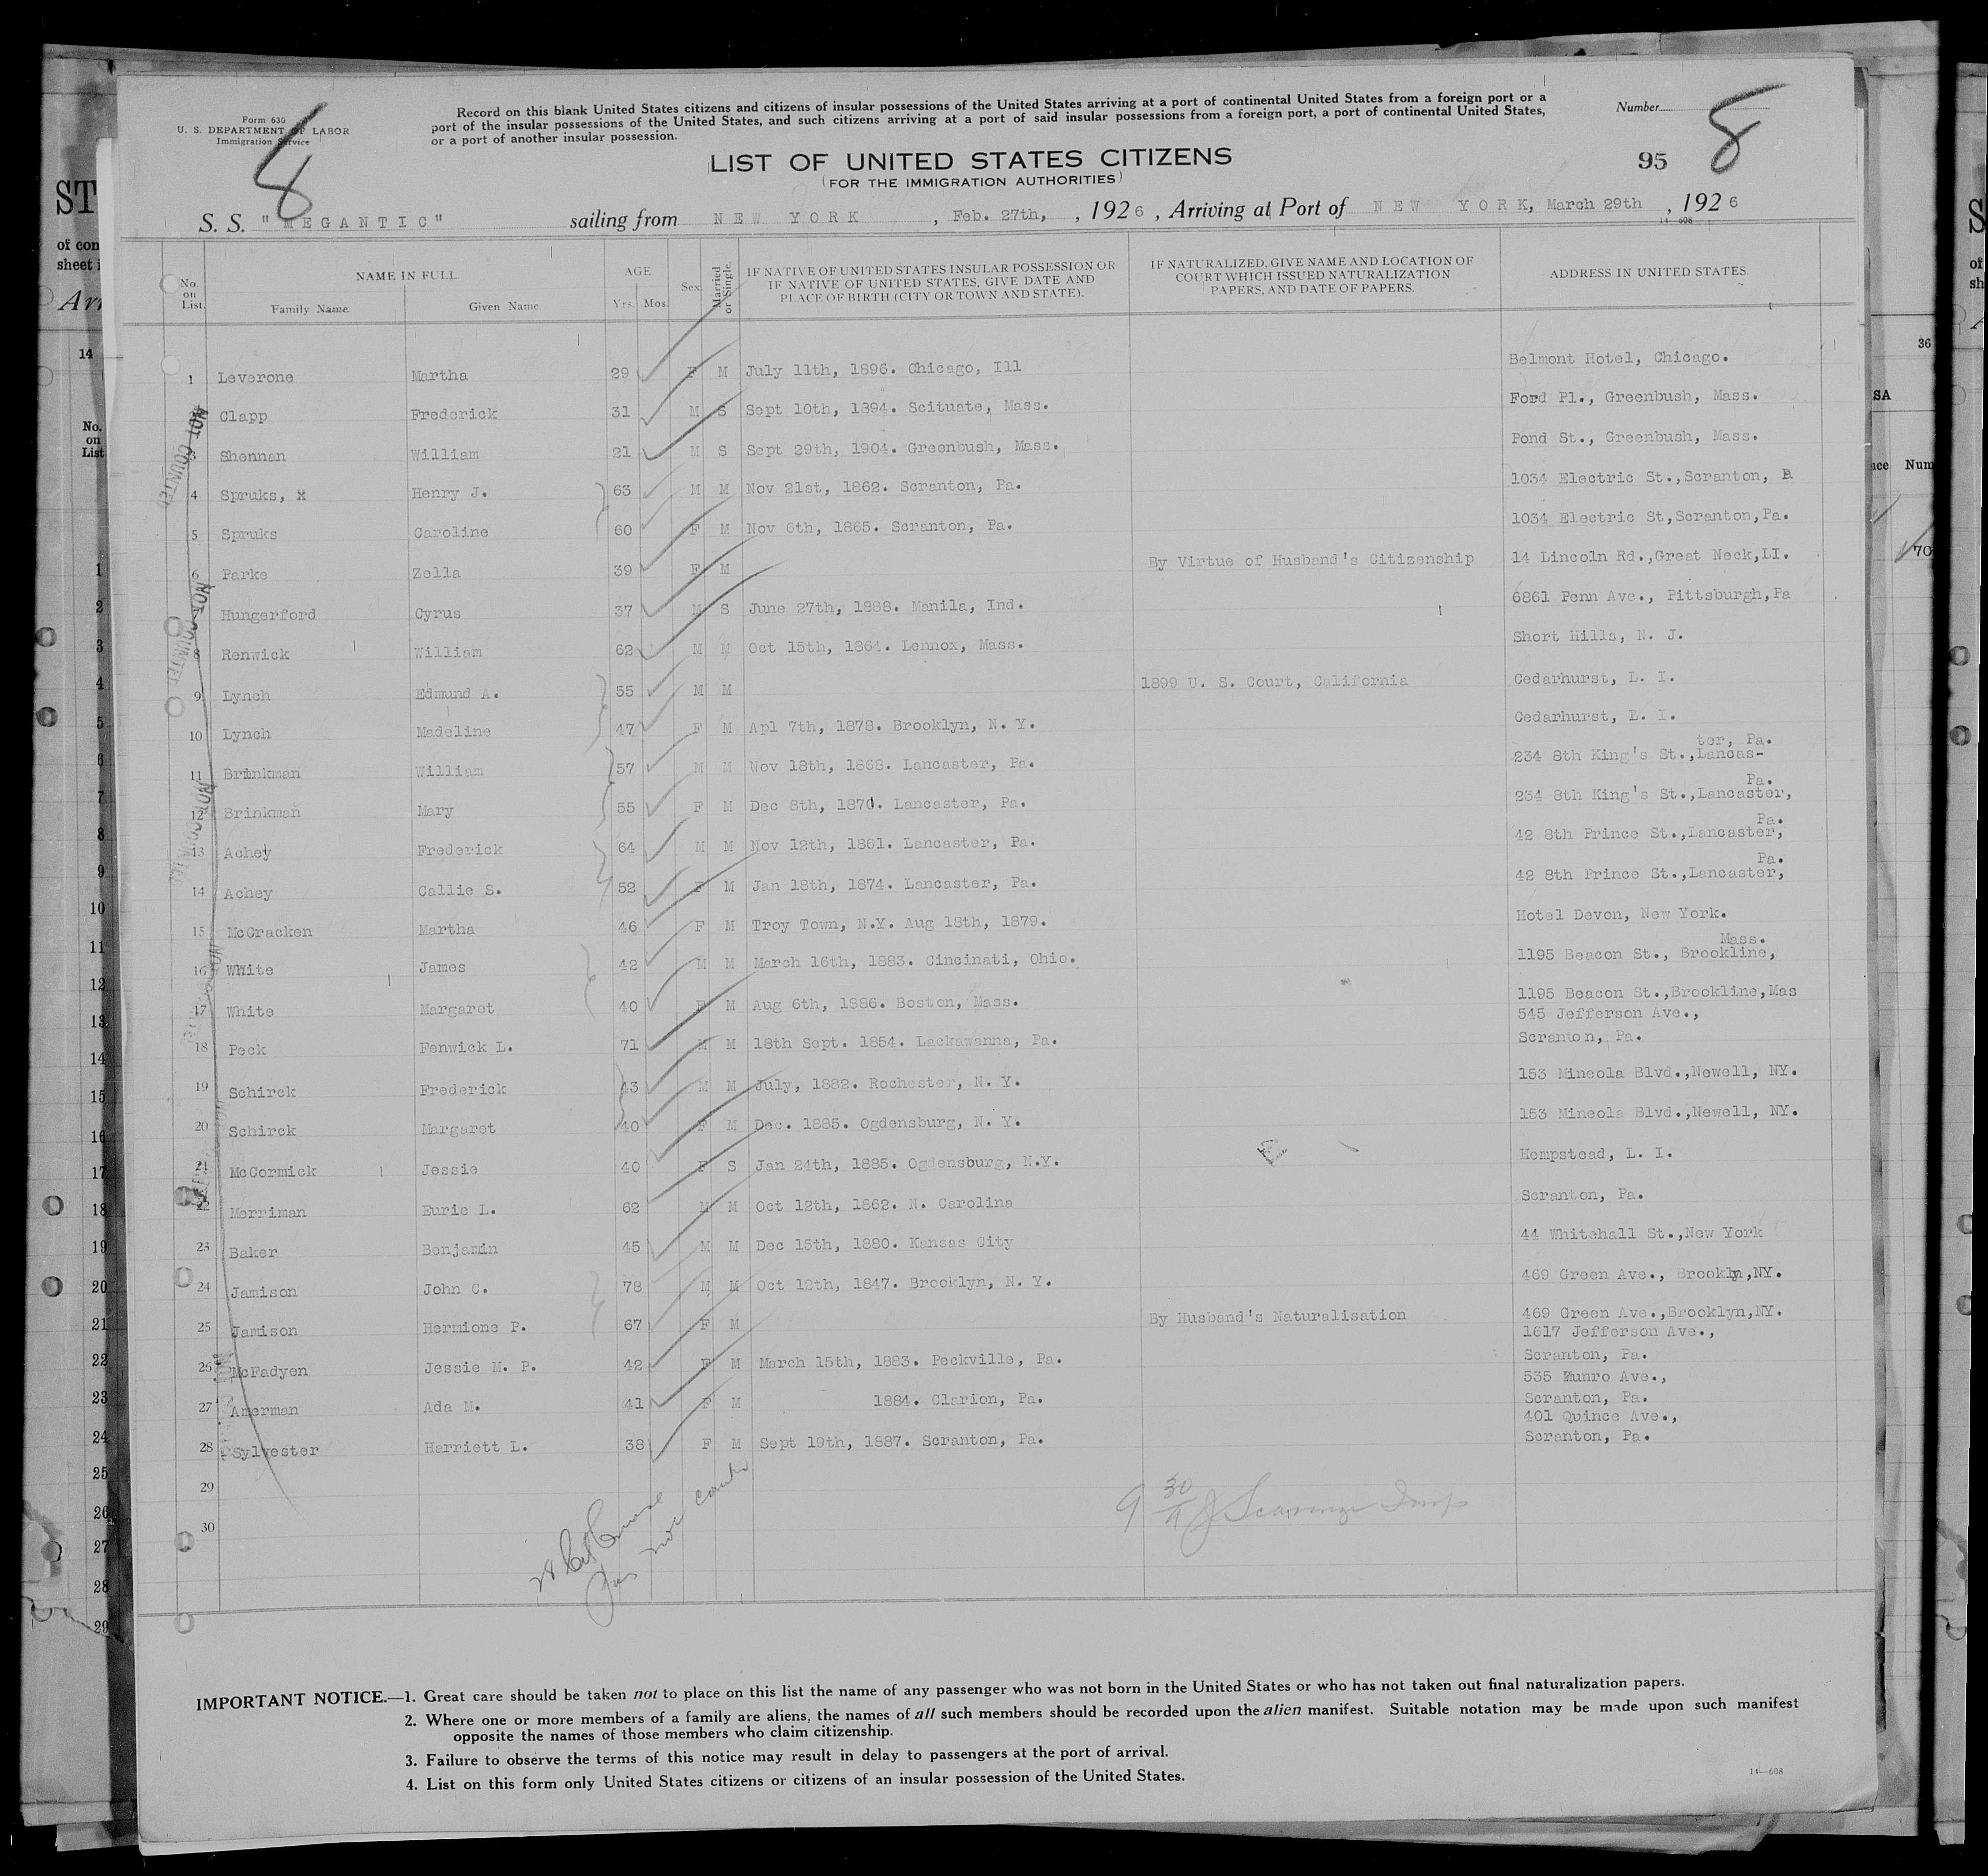 Form 630
U. S. DEPARTMENT OF LABOR
Immigration Service
Record on this blank United States citizens and citizens of insular possessions of the United States arriving at a port of continental United States from a foreign port or a
port of the insular possessions of the United States, and such citizens arriving at a port of said insular possessions from a foreign port, a port of continental United States,
or a port of another insular possession.
Number
8
8
95
LIST OF UNITED STATES CITIZENS
(FOR THE IMMIGRATION AUTHORITIES)
S. S. "MEGANTIC" sailing from NEW YORK, Feb. 27th, , 1926, Arriving at Port of NEW YORK, March 29th, 1926
14—608
No. on List.
NAME IN FULL
Family Name
Given Name
AGE
Yrs. Mos.
Sex
Married or Single.
IF NATIVE OF UNITED STATES INSULAR POSSESSION OR
IF NATIVE OF UNITED STATES, GIVE DATE AND
PLACE OF BIRTH (CITY OR TOWN AND STATE).
IF NATURALIZED, GIVE NAME AND LOCATION OF
COURT WHICH ISSUED NATURALIZATION
PAPERS, AND DATE OF PAPERS.
ADDRESS IN UNITED STATES.
1 Leverone Martha 29 F M July 11th, 1896. Chicago, Ill Belmont Hotel, Chicago.
Clapp Frederick 31 M S Sept 10th, 1894. Scituate, Mass. Ford Pl., Greenbush, Mass.
3 Shennan William 21 M S Sept 29th, 1904. Greenbush, Mass. Pond St., Greenbush, Mass.
4 Spruks, M Henry J. 63 M M Nov 21st, 1862. Scranton, Pa. 1034 Electric St.,Scranton, P
5 Spruks Caroline 60 F M Nov 6th, 1865. Scranton, Pa. 1034 Electric St,Scranton,Pa.
6 Parke Zella 39 F M By Virtue of Husband's Citizenship 14 Lincoln Rd.,Great Neck,LI.
Hungerford Cyrus 37 M S June 27th, 1888. Manila, Ind. 6861 Penn Ave., Pittsburgh,Pa
8 Renwick William 62 M M Oct 15th, 1864. Lennox, Mass. Short Hills, N. J.
9 Lynch Edmund A. 55 M M 1899 U. S. Court, California Cedarhurst, L. I.
10 Lynch Madeline 47 F M Apl 7th, 1878. Brooklyn, N. Y. Cedarhurst, L. I.
11 Brinkman William 57 M M Nov 18th, 1868. Lancaster, Pa. 234 8th King's St.,Lancas-
ter, Pa.
12 Brinkman Mary 55 F M Dec 8th, 1870. Lancaster, Pa. 234 8th King's St.,Lancaster,
Pa.
13 Achey Frederick 64 M M Nov 12th, 1861. Lancaster, Pa. 42 8th Prince St.,Lancaster,
Pa.
14 Achey Callie S. 52 F M Jan 18th, 1874. Lancaster, Pa. 42 8th Prince St.,Lancaster,
Pa.
15 McCracken Martha 46 F M Troy Town, N.Y. Aug 18th, 1879. Hotel Devon, New York.
16 White James 42 M M March 16th, 1883. Cincinati, Ohio. 1195 Beacon St., Brookline,
Mass.
17 White Margaret 40 F M Aug 6th, 1886. Boston, Mass. 1195 Beacon St.,Brookline,Mas
18 Peck Fenwick L. 71 M M 18th Sept. 1854. Lackawanna, Pa. 545 Jefferson Ave.,
Scranton, Pa.
19 Schirck Frederick 43 M M July, 1882. Rochester, N. Y. 153 Mineola Blvd.,Newell, NY.
20 Schirck Margaret 40 F M Dec. 1885. Ogdensburg, N. Y. 153 Mineola Blvd.,Newell, NY.
21 McCormick Jessie 40 F S Jan 24th, 1885. Ogdensburg, N.Y. Hempstead, L. I.
22 Merriman Eurie L. 62 M M Oct 12th, 1862. N. Carolina Scranton, Pa.
23 Baker Benjamin 45 M M Dec 15th, 1880. Kansas City 44 Whitehall St.,New York
24 Jamison John C. 78 M M Oct 12th, 1847. Brooklyn, N. Y. 469 Green Ave., Brooklyn,NY.
25 Jamison Hermione P. 67 F M By Husband's Naturalisation 469 Green Ave.,Brooklyn,NY.
26 McFadyen Jessie M. P. 42 F M March 15th, 1883. Peckville, Pa. 1617 Jefferson Ave.,
Scranton, Pa.
27 Amerman Ada M. 41 F M 1884. Clarion, Pa. 535 Munro Ave.,
Scranton, Pa.
28 Sylvester Harriett L. 38 F M Sept 19th, 1887. Scranton, Pa. 401 Quince Ave.,
Scranton, Pa.
29
30
NOT COUNTED
NOT COUNTED
NOT COUNTED
IMPORTANT NOTICE.—1. Great care should be taken not to place on this list the name of any passenger who was not born in the United States or who has not taken out final naturalization papers.
2. Where one or more members of a family are aliens, the names of all such members should be recorded upon the alien manifest. Suitable notation may be made upon such manifest
opposite the names of those members who claim citizenship.
3. Failure to observe the terms of this notice may result in delay to passengers at the port of arrival.
4. List on this form only United States citizens or citizens of an insular possession of the United States.
14—608